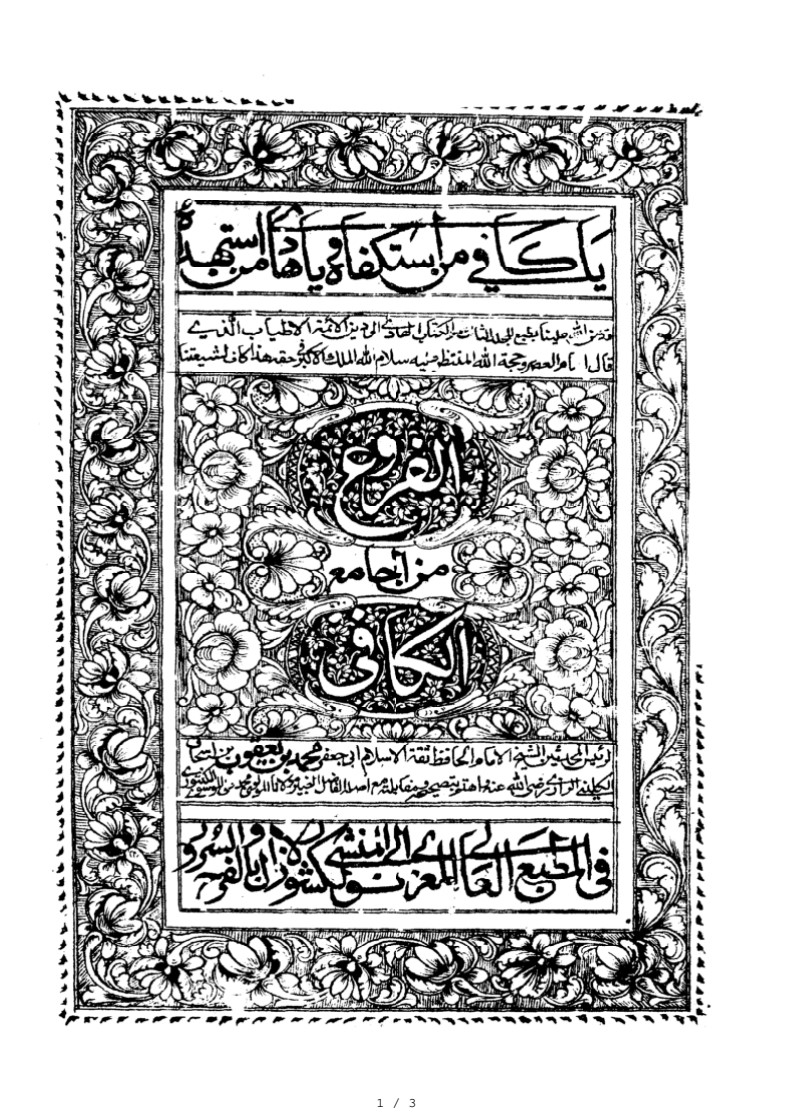 يا كافي من استكفاه ويا هادي من استهداه
قد من الله علينا بطبع المجلد الثالث من الكتاب الهادي الى دين الائمة الاطياب الذي
قال امام العصر وحجة الله المنتظر عليه سلام الله الملك الاكبر في حقه هذا كاف لشيعتنا
الفروع
من الجامع
الكافي
لرئيس المحدثين الشيخ الامام الحافظ ثقة الاسلام ابي جعفر محمد بن يعقوب بن اسحاق
الكليني الرازي رضي الله عنه وتصحيحه ومقابلته من اصله الفاضل مولانا
في المطبع العالي المعزى الى المنشي نولكشور لا زال بالفرح والسرور
1 / 3